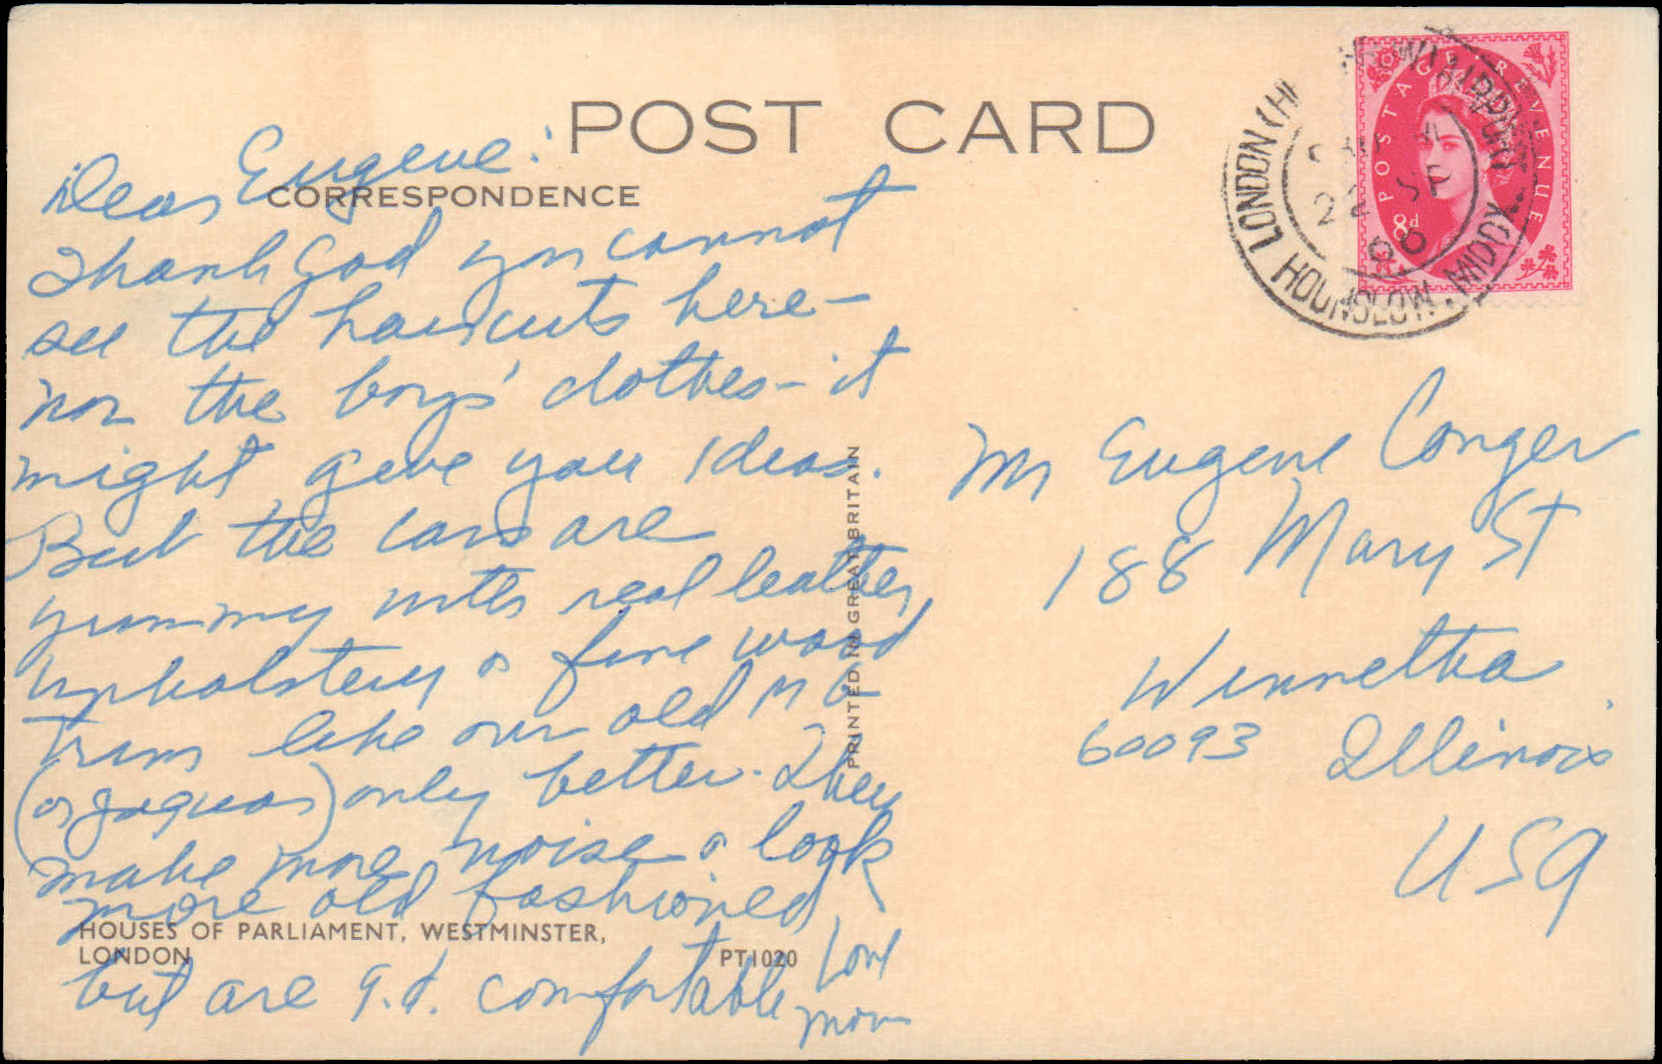 POST CARD
CORRESPONDENCE
Dear Eugene:
Thank God you cannot
see the haircuts here –
nor the boys' clothes – it
might give you ideas.
But the cars are
yummy with real leather
upholstery & fine wood
trim like our old MG
(or Jaguar) only better. They
make more noise & look
more old fashioned
but are g.d. comfortable
Love
Mom
HOUSES OF PARLIAMENT, WESTMINSTER,
LONDON
PT1020
PRINTED IN GREAT BRITAIN
POSTAGE REVENUE
8d
LONDON AIRPORT
22 SP
HOUNSLOW, MIDDX
Mr Eugene Conger
188 Mary St
Winnetka
60093 Illinois
USA